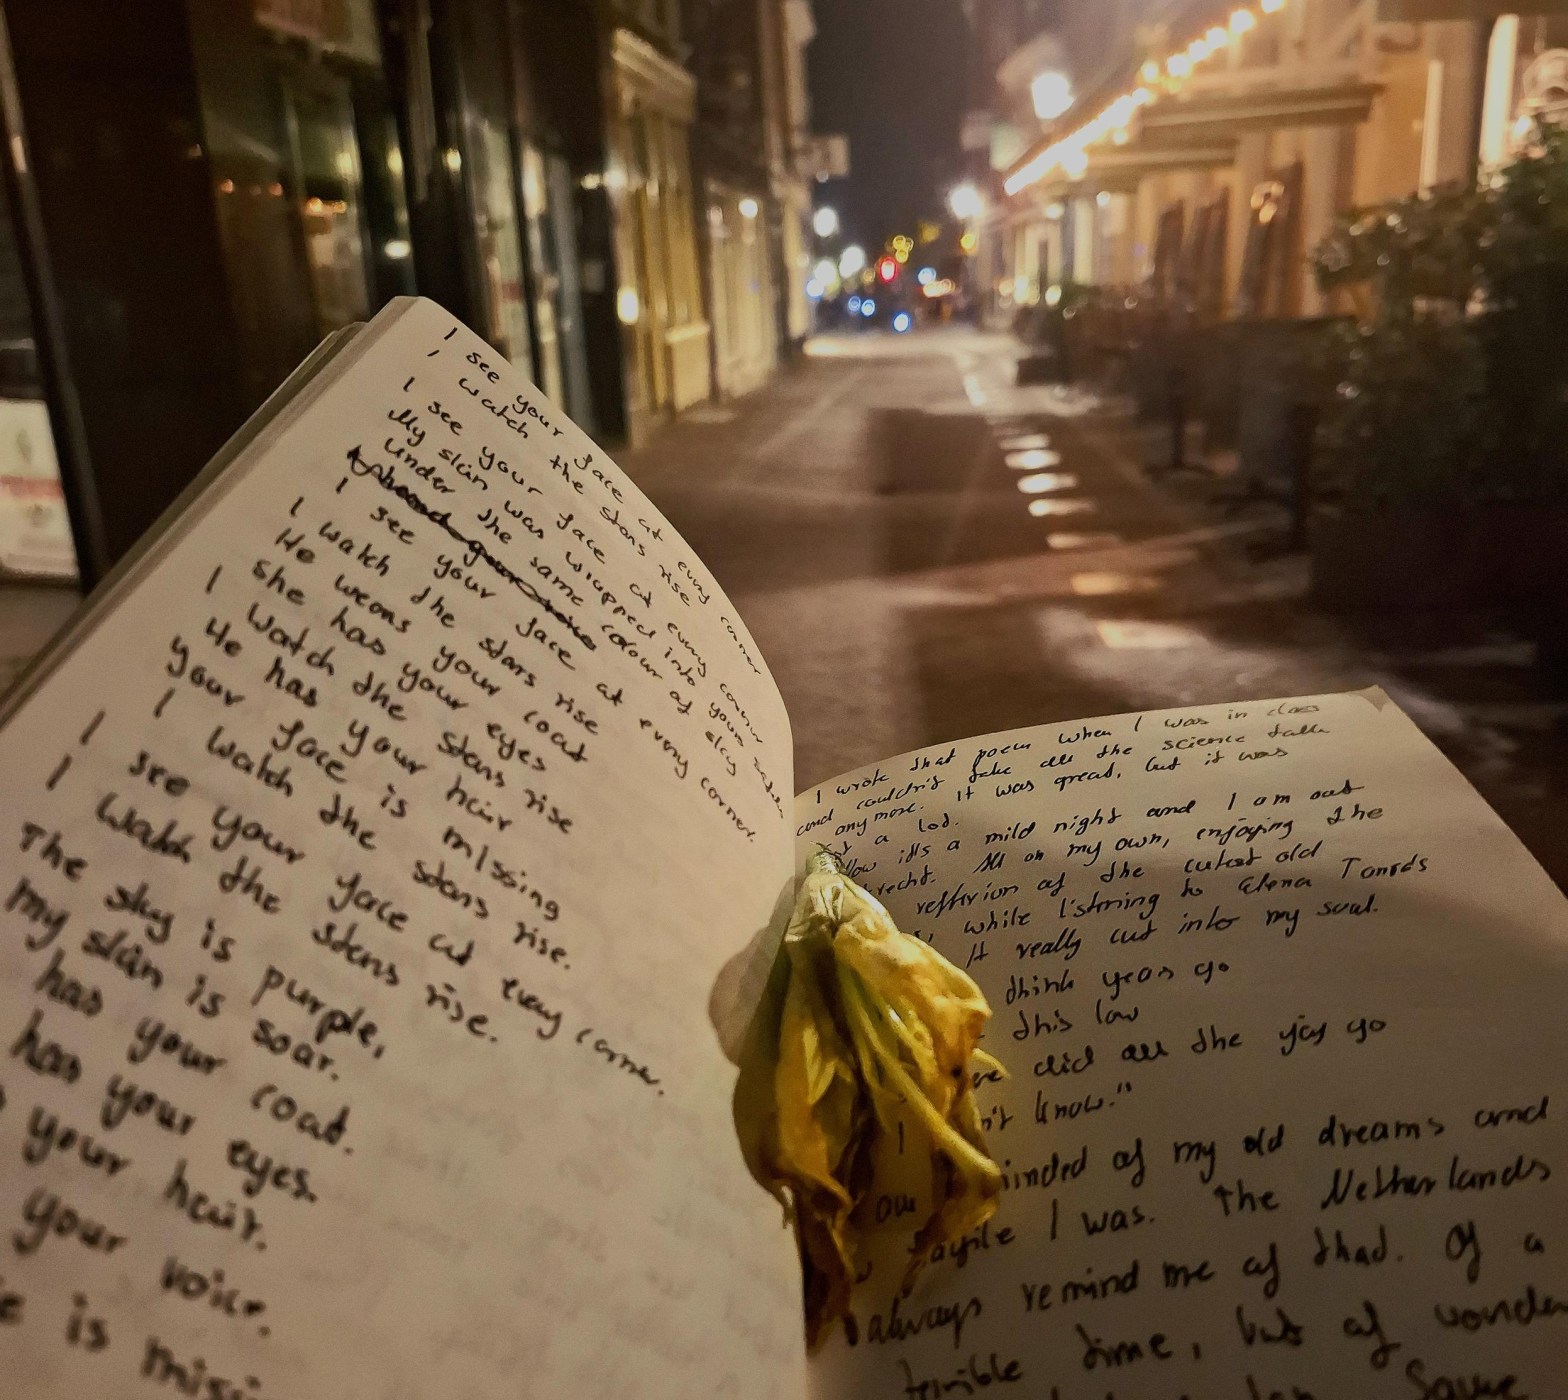 I see your face at every corner
I watch the stars rise
I see your face at every corner
My skin was wrapped into yours
Under the same colour of sky
I see your face at every corner.
I watch the stars rise
He wears your coat
She has your eyes
I watch the stars rise
He has your hair
your face is missing
I watch the stars rise.
I see your face at every corner.
I watch the stars rise.
The sky is purple,
my skin is soar.
has your coat.
has your eyes.
your hair.
your voice.
is
I wrote that poem when I was in class
and couldn't take all the science talk
anymore. It was great, but it was
a lot.
Now it's a mild night and I am out
All on my own, enjoying the
of the cutest old
while listening to Elena Tonra's
It really cut into my soul.
think years go
this low
did all the joy go
know."
I
of my old dreams and
I was. The Netherlands
always remind me of that. Of a
terrible time, but of